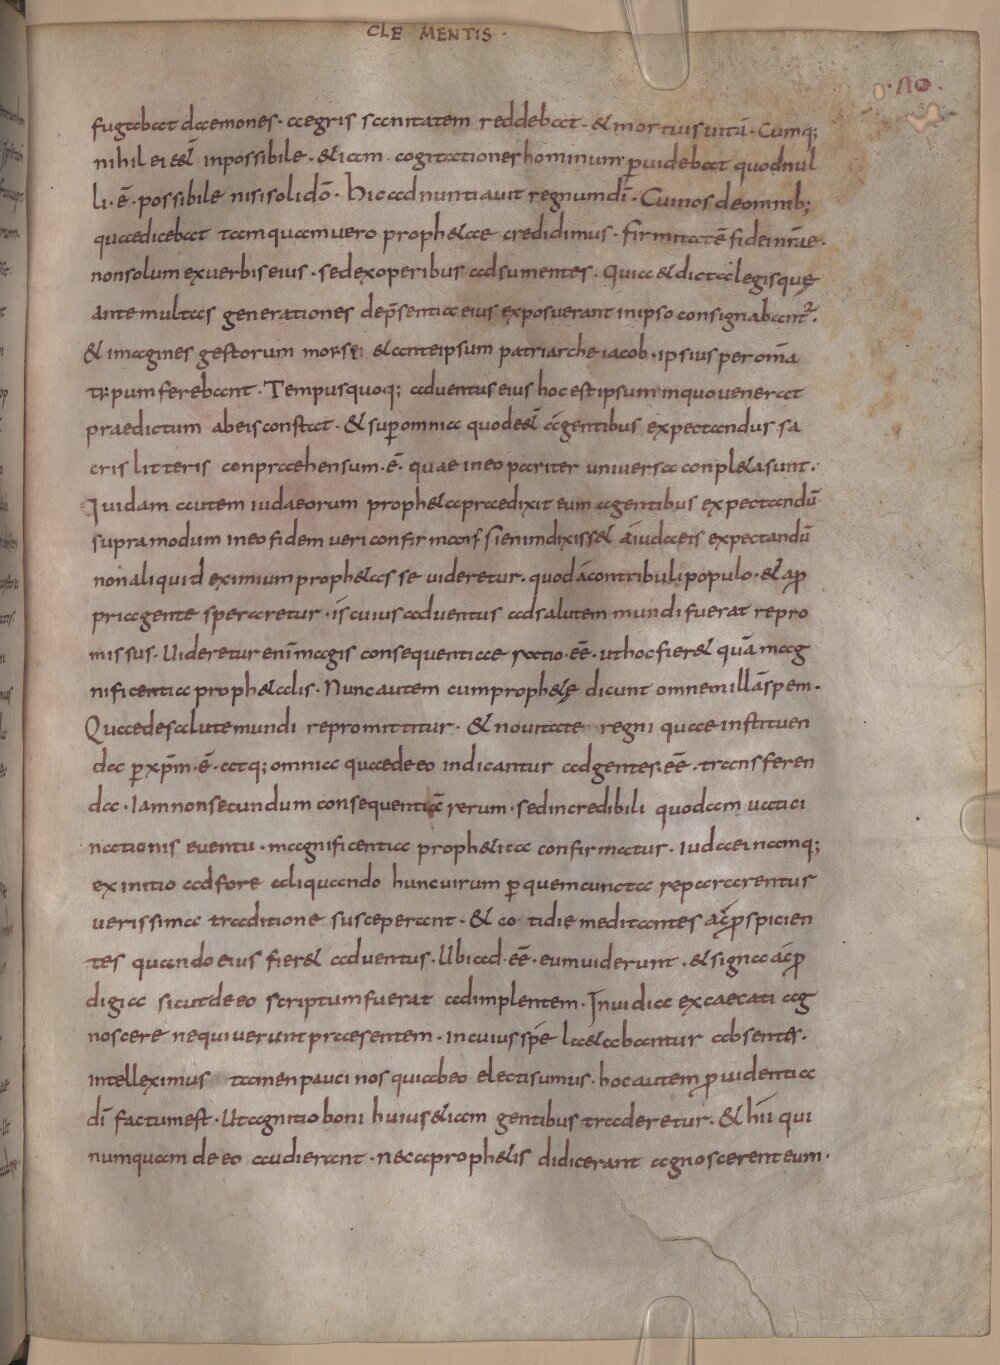 CLEMENTIS ·
fugabat daemones · aegris sanitatem reddebat · & mortuis uitā · Cumq;
nihil ei eēt inpossibile · &iam · cogitationes hominum p̱uidebat quod nul
li · ē · possibile nisi soli dō · Hic adnuntiauit regnum dī · Cui nos de omnib;
quae dicebat tamquam uero prophetae credidimus · firmitatē fidei nr̄ae ·
non solum ex uerbis eius · sed ex operibus adsumentes · Quia & dicta legis quę
ante multas generationes dep̄sentia eius exposuerant in ipso consignabant² ·
& imagines gestorum morsei & ante ipsum patriarche iacob · ipsius per om̄a
typum ferebant · Tempus quoq; aduentus eius hoc est ipsum in quo uenerat
praedictum ab eis constat · & sup̱ omnia quod eēt ágentibus expectandus sa
cris litteris conpraehensum · ē · quae in eo pariter uniuersa conpl&a sunt ·
Quidam autem iudaeorum proph&a praedixit eum agentibus expectandū
supra modum in eo fidem ueri confirmans si enim dixiss& á iudaeis expectandū
non aliquid eximium proph&as se uideretur · quod á contribuli populo · & a p̱
pria gente speraretur · is cuius aduentus ad salutem mundi fuerat repro
missus · Uideretur enī magis consequentiae ratio · eē · ut hoc fier& quā mag
nificentia proph&alis · Nunc autem cum proph&ę dicunt omnem illā spem ·
Quae de salute mundi repromittitur · & nouitate regni quae instituen
da p̱ xp̄m · ē · atq; omnia quae de eo indicantur ad gentes · eē · transferen
da · Iam non secundum consequentiā rerum · sed incredibili quodam uatici
nationis euentu · magnificentia proph&ica confirmatur · iudaei namq;
ex initio adfore aliquando hunc uirum p̱ quem cuncta repararentur
uerissima traditione susceperant · & cotidie meditantes ac p̱spicien
tes quando eius fier& aduentus · Ubi ad · eē · eum uiderunt · & signa ac p̱
digia sicut de eo scriptum fuerat adimplentem · Inuidia excaecati ag
noscere nequiuerunt praesentem · in cuius spē la&abantur absentes ·
intelleximus tamen pauci nos qui ab eo electi sumus · hoc autem p̱uidentia
dī factum est · Ut agnitio boni huius &iam gentibus traderetur · & hii qui
numquam de eo audierant · nec a proph&is didicerant agnoscerent eum ·